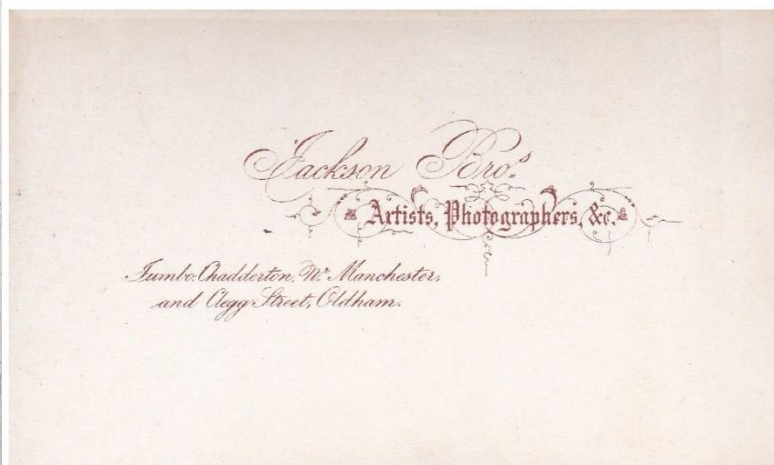 Jackson Bros.
Artists, Photographers, &c.
Jumbo. Chadderton, Nr. Manchester,
and Clegg Street, Oldham.